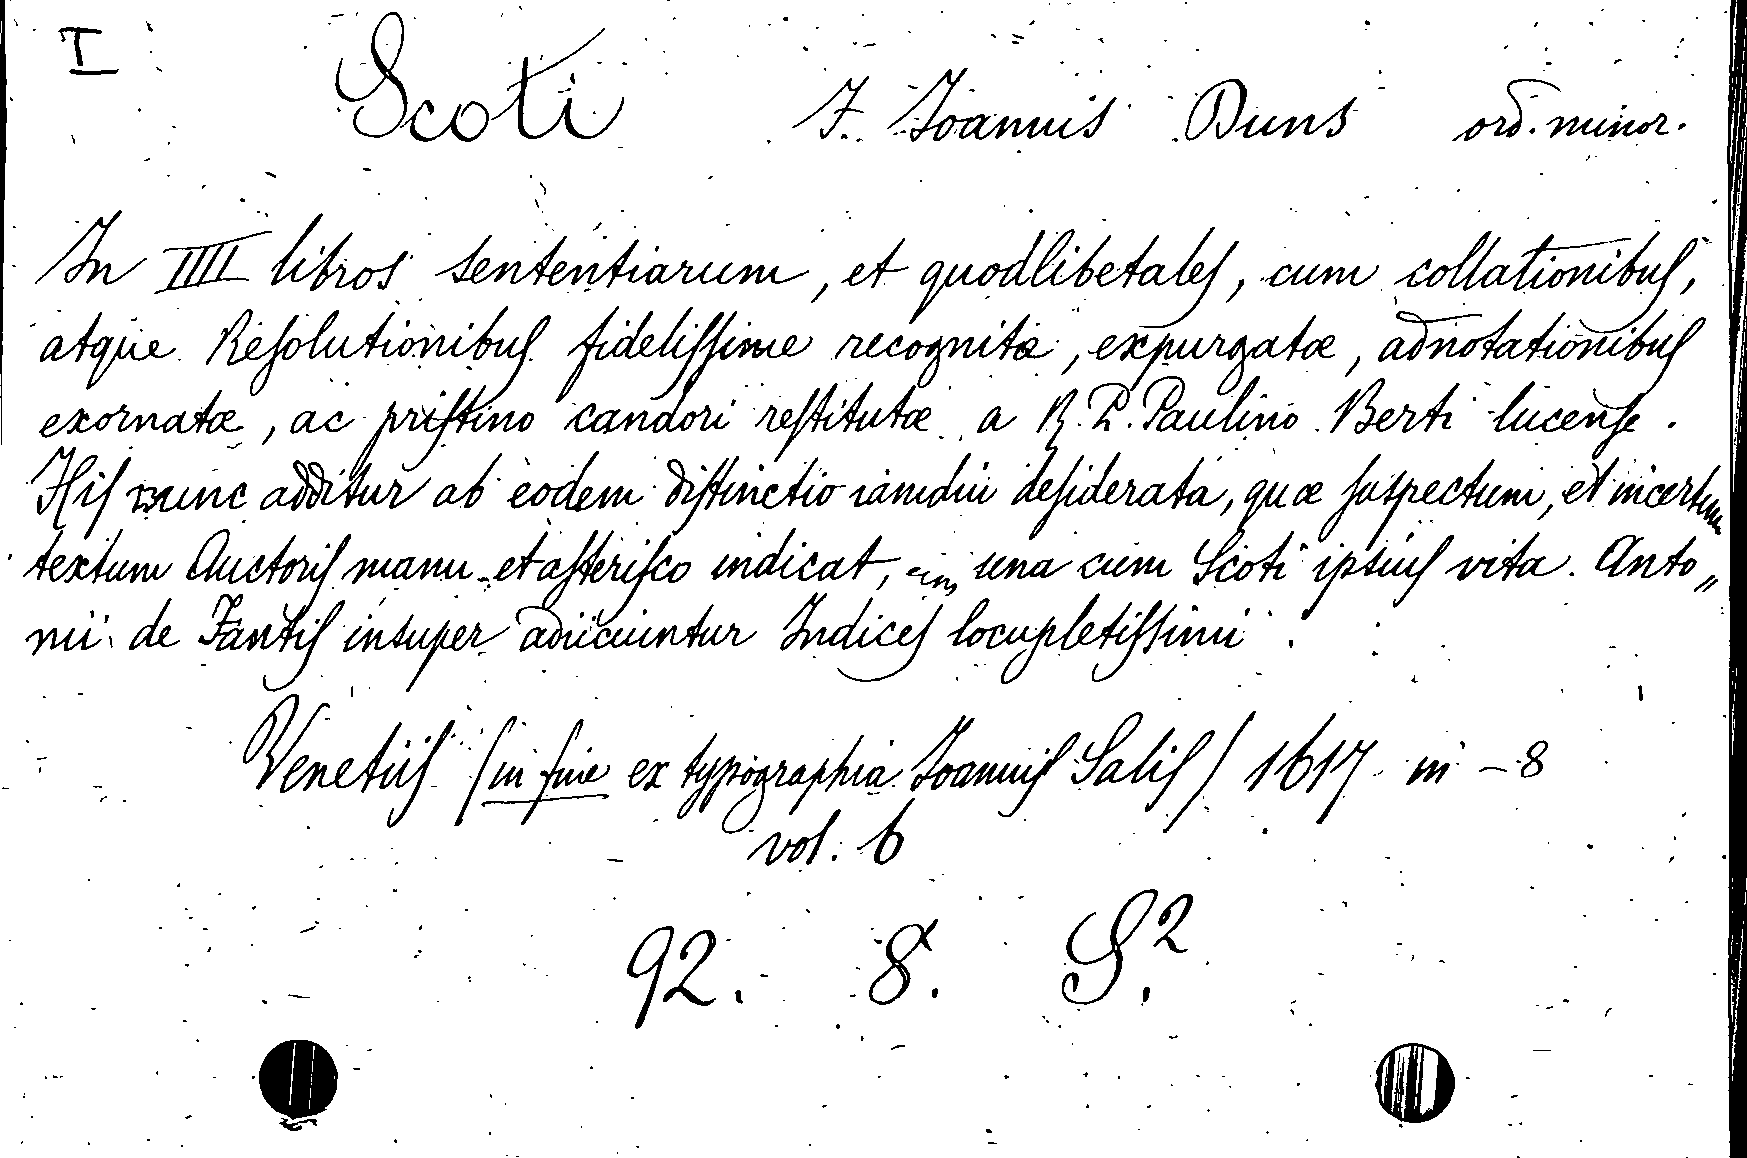 I
Scoti F. Joannis Duns ord. minor.
In IIII libros sententiarum, et quodlibetales, cum collationibus,
atque Resolutionibus fidelissime recognitæ, expurgatæ, adnotationibus
exornatæ, ac pristino candori restitutæ a R. P. Paulino Berti lucense.
His nunc additur ab eodem distinctio iamdiu desiderata, quæ suspectum, et incertum
textum Auctoris manu et asterisco indicat, una cum Scoti ipsius vita. Anto„
nii de Fantis insuper adiiciuntur Indices locupletissimi.
Venetiis (in fine ex typographia Joannis Salis) 1617 in -8
vol. 6
92. 8. S.²